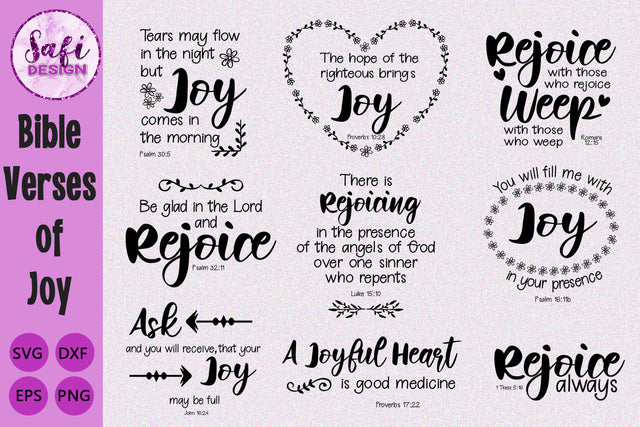 Safi
DESIGN
Bible
Verses
of
Joy
SVG DXF
EPS PNG
Tears may flow
in the night
but
Joy
comes in
the morning
Psalm 30:5
The hope of the
righteous brings
Joy
Proverbs 10:28
Rejoice
with those
who rejoice
Weep
with those
who weep
Romans
12:15
Be glad in the Lord
and
Rejoice
Psalm 32:11
There is
Rejoicing
in the presence
of the angels of God
over one sinner
who repents
Luke 15:10
You will fill me with
Joy
in your presence
Psalm 16:11b
Ask
and you will receive, that your
Joy
may be full
John 16:24
A Joyful Heart
is good medicine
Proverbs 17:22
Rejoice
1 Thess 5:16
always